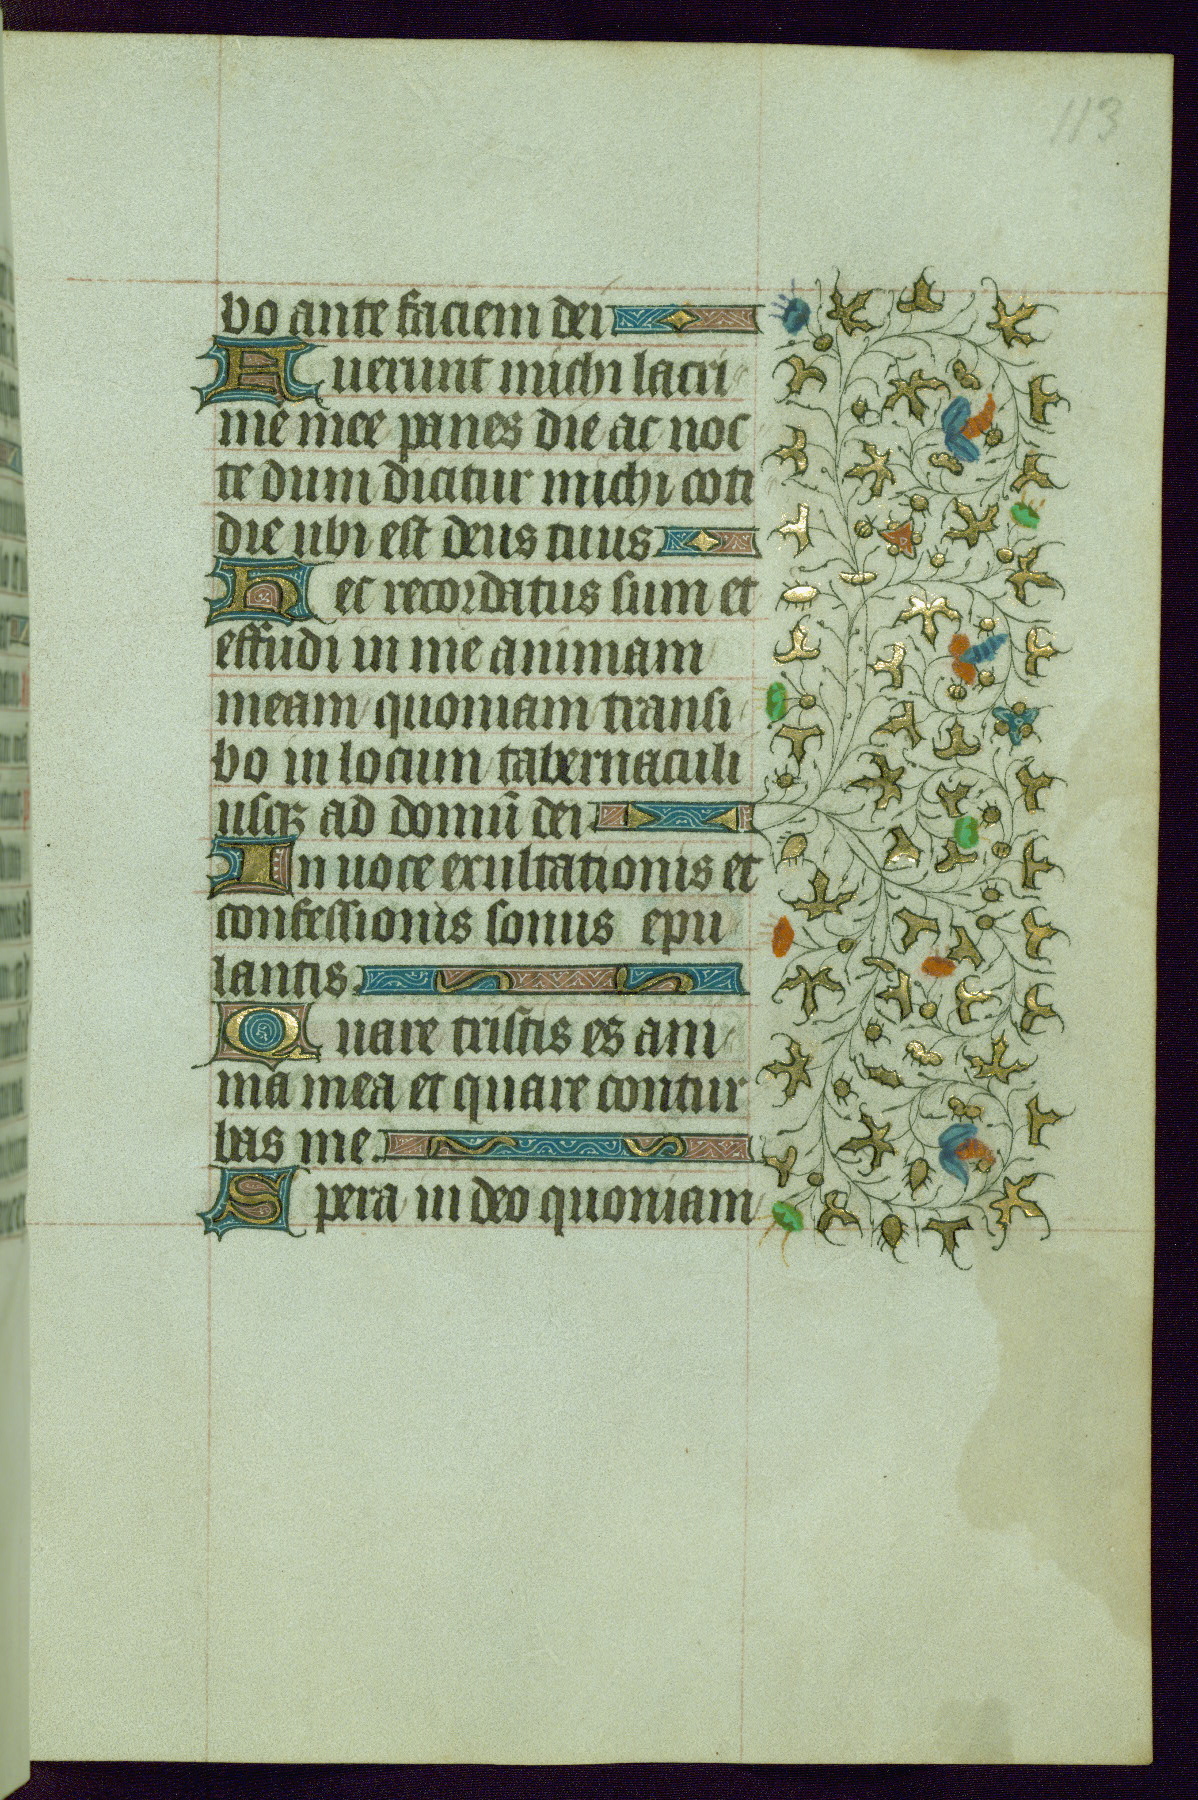 113
bo ante faciem dei
Fuerunt michi lacri
me mee panes die ac noc
te dum dicitur michi coti
die ubi est deus tuus
Hec recordatus sum et
effudi in me animam
meam quoniam transi
bo in locum tabernaculi
usqꝫ ad domū dei
In uoce exultationis et
confessionis sonus epu
lantis
Quare tristis es ani
ma mea et quare contur
bas me.
Spera in deo quoniam